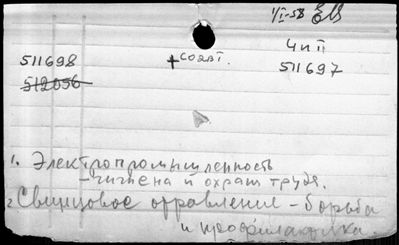 1/I-58
Ч и II
511698
СОЗВI.
511697
512056
1. Электропромышленность
- гигиена и охрана труда.
2. Свинцовое отравление - борьба
и профилактика.